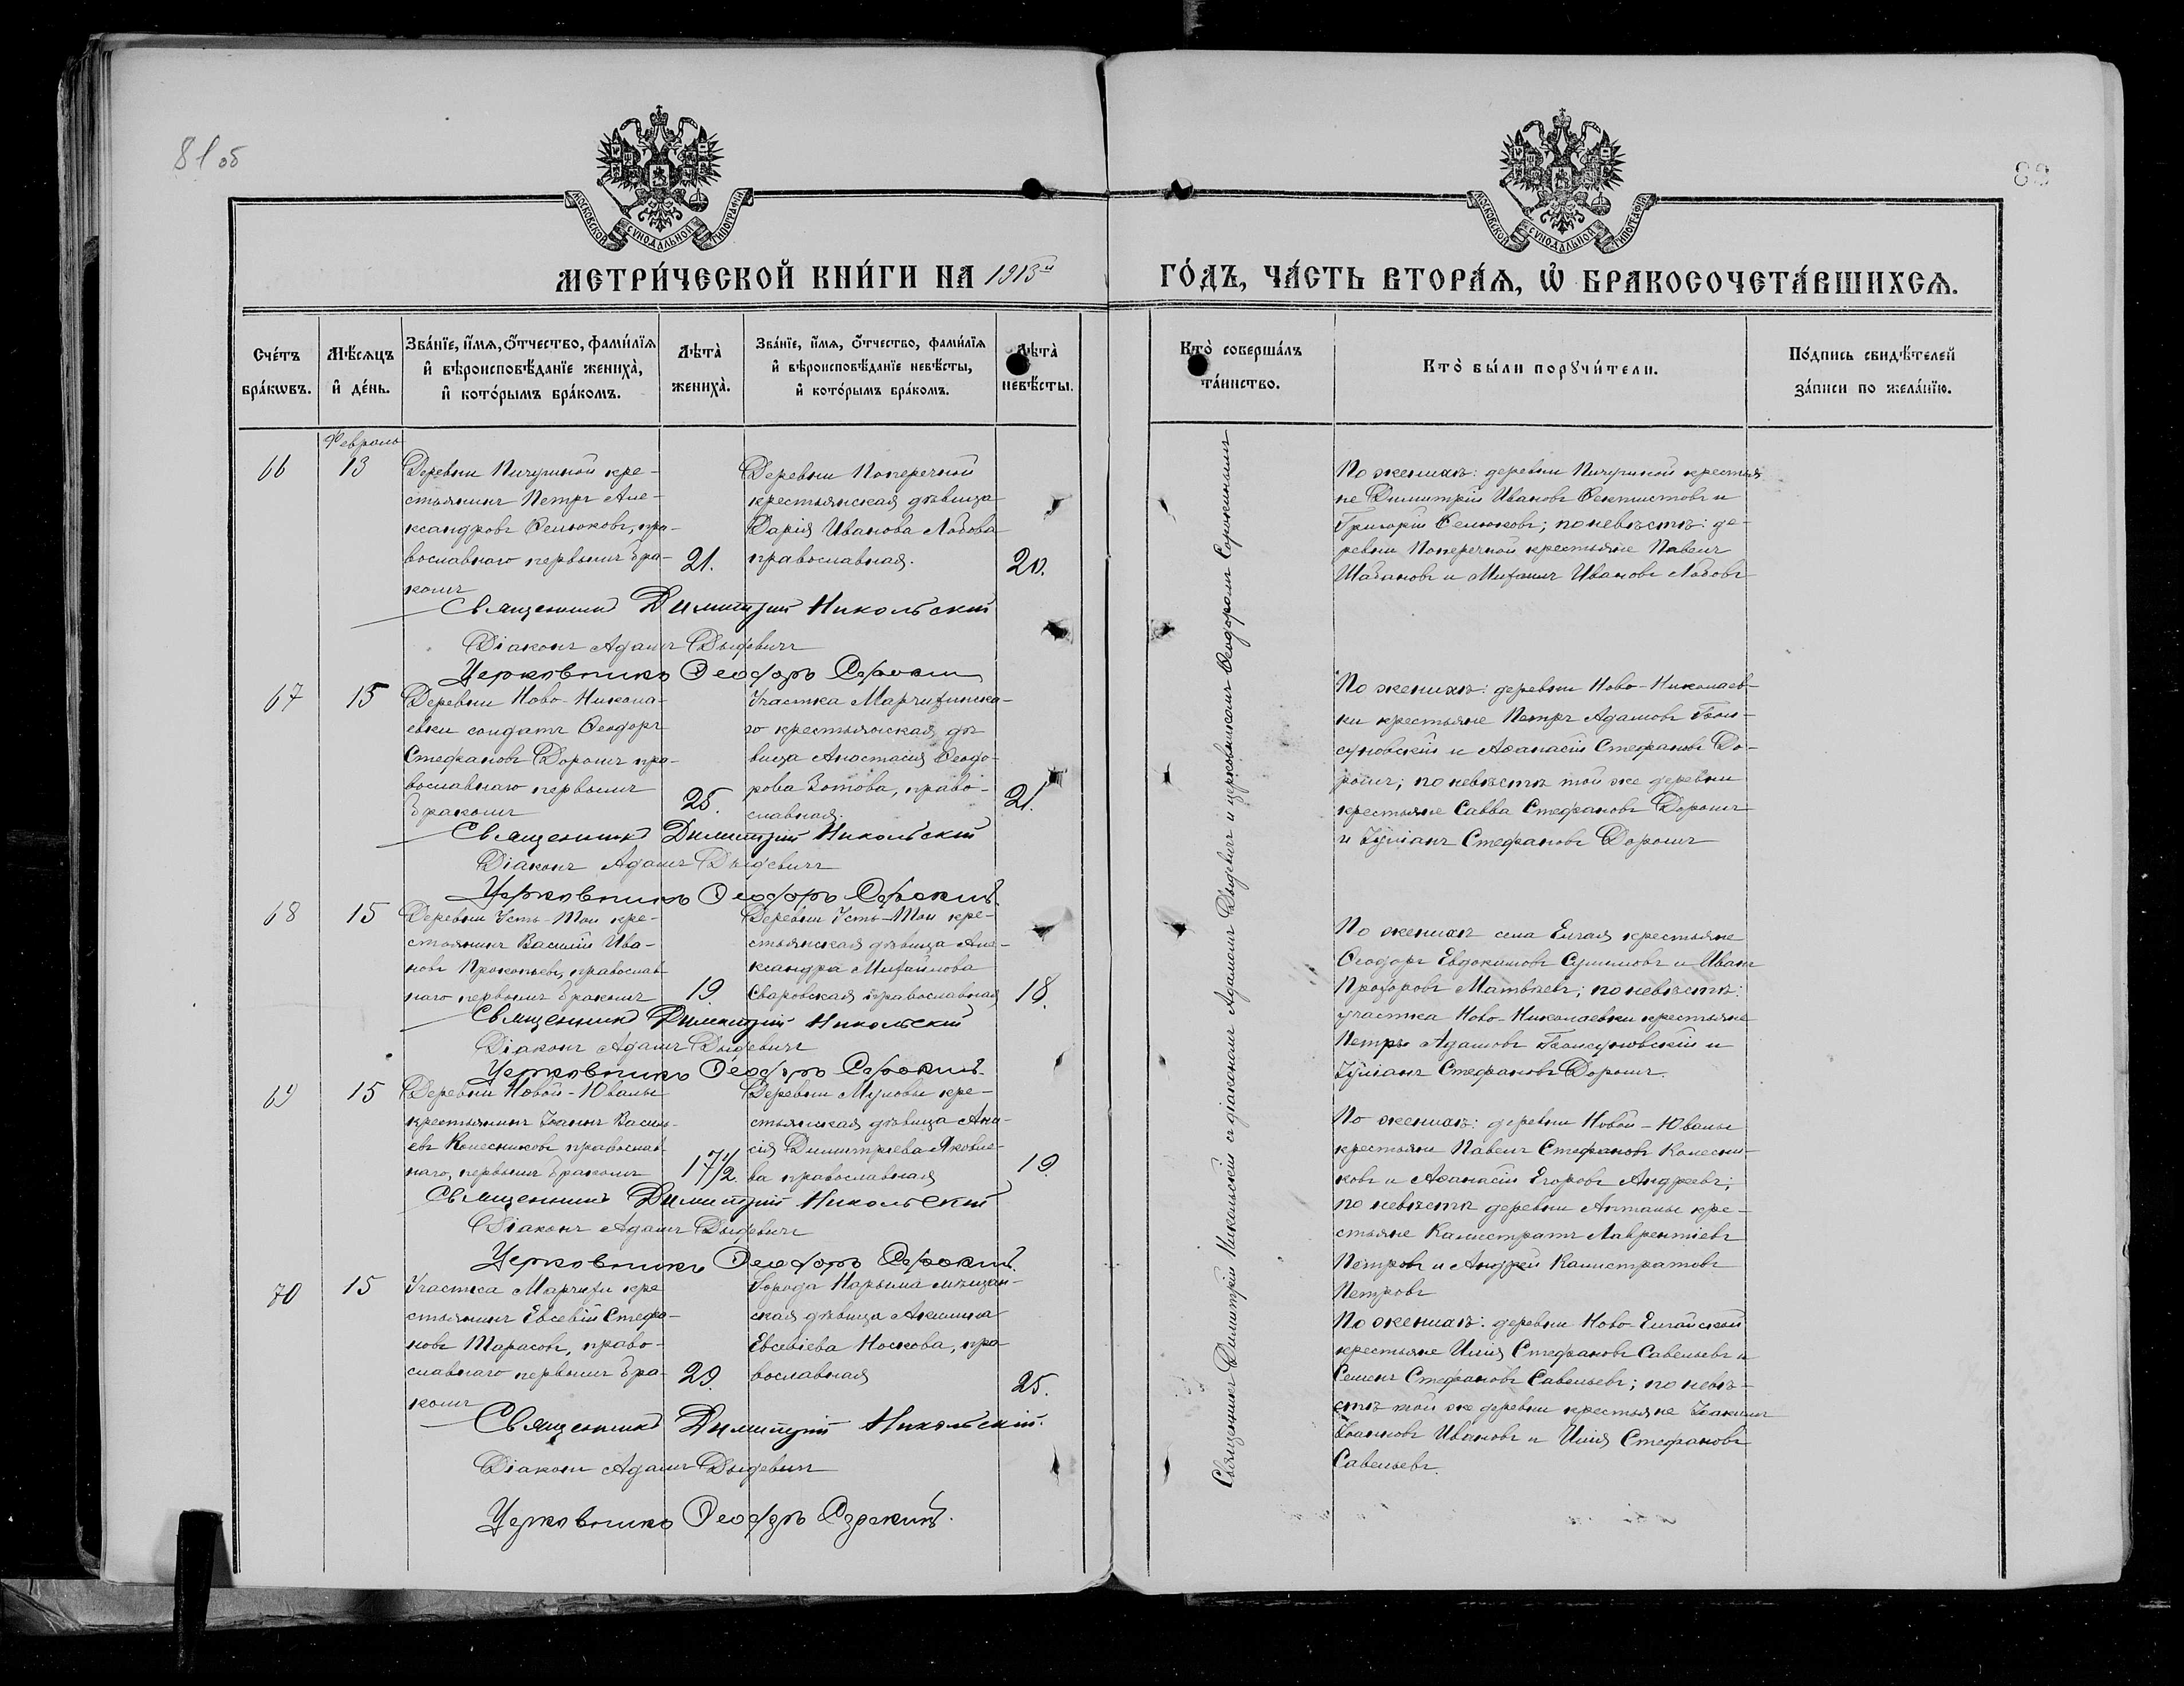 81 об
82
МОСКОВСКОЙ СѴНОДАЛЬНОЙ ТИПОГРАФІИ
МОСКОВСКОЙ СѴНОДАЛЬНОЙ ТИПОГРАФІИ
МЕТРИ́ЧЕСКОЙ КНИ́ГИ НА 1913й
ГО́ДЪ, ЧА́СТЬ ВТОРА́Ѧ, Ѡ҆ БРАКОСОЧЕТА́ВШИХСѦ.
Сче́тъ бра́кѡвъ.
Мѣ́сѧцъ и҆ де́нь.
Зва́нїе, и҆́мѧ, ѻ҆́тчество, фами́лїѧ
и҆ вѣроисповѣ́данїе жениха̀,
и҆ кото́рымъ бра́комъ.
Лѣта̀ жениха̀.
Зва́нїе, и҆́мѧ, ѻ҆́тчество, фами́лїѧ
и҆ вѣроисповѣ́данїе невѣ́сты,
и҆ кото́рымъ бра́комъ.
Лѣта̀ невѣ́сты.
Кто̀ соверша́лъ
та́инство.
Кто̀ бы́ли порꙋчи́тели.
По́дпись свидѣ́телей
за́писи по жела́нїю.
Февраль
66
13
Деревни Пичугиной кре-
стьянинъ Петръ Але-
ксандровъ Селюковъ, пра-
вославнаго первымъ бра-
комъ
21.
Деревни Поперечной
крестьянская дѣвица
Дарія Иванова Лобова
православная.
20.
Священникъ Димитрій Никольскій
Діаконъ Адамъ Дыдевичъ
Церковникъ Ѳеодоръ Сорокинъ
67
15
Деревни Ново-Никола-
евки солдатъ Ѳеодоръ
Стефановъ Дорошъ пра-
вославнаго первымъ
бракомъ
25.
Участка
крестьянская дѣ-
вица Анастасія Ѳеодо-
рова Зотова, право-
славная.
21.
Священникъ Димитрій Никольскій
Діаконъ Адамъ Дыдевичъ
Церковникъ Ѳеодоръ Сорокинъ.
68
15
Деревни Усть-Мои кре-
стьянинъ Василій Ива-
новъ Прокопьевъ, православ-
наго первымъ бракомъ
19.
Деревни Усть-Мои кре-
стьянская дѣвица Але-
ксандра Михайлова
Сваровская православная
18.
Священникъ Димитрій Никольскій
Діаконъ Адамъ Дыдевичъ
Церковникъ Ѳеодоръ Сорокинъ
69
15
Деревни Новой-Ювалы
крестьянинъ Іоаннъ Василь-
евъ Колесниковъ православ-
наго, первымъ бракомъ
17 1/2.
Деревни кре-
стьянская дѣвица Ана-
сія Димитріева Яковле-
ва православная
19
Священникъ Димитрій Никольскій
Діаконъ Адамъ Дыдевичъ
Церковникъ Ѳеодоръ Сорокинъ.
70
15
Участка кре
стьянинъ Евсевій Стефа-
новъ Тарасовъ, право-
славнаго первымъ бра-
комъ
29.
Города Нарыма мѣщан-
ская дѣвица Акилина
Евсевіева Носкова, пра-
вославная
25.
Священникъ Димитрій Никольскій.
Діаконъ Адамъ Дыдевичъ
Церковникъ Ѳеодоръ Сорокинъ.
Священникъ Димитрій Никольскій съ діакономъ Адамомъ Дыдевичъ и церковникомъ Ѳеодоромъ Сорокинымъ
По женихѣ: деревни Пичугиной крестья
не Димитрій Ивановъ Ѳектистовъ и
Григорій Селюковъ; по невѣстѣ: де-
ревни Поперечной крестьяне Павелъ
Шабановъ и Михаилъ Ивановъ Лобовъ
По женихѣ: деревни Ново-Николаев-
ки крестьяне Петръ Адамовъ
и Аѳанасій Стефановъ До-
рошъ; по невѣстѣ той же деревни
крестьяне Савва Стефановъ Дорошъ
и Іуліанъ Стефановъ Дорошъ
По женихѣ села Елгая крестьяне
Ѳеодоръ Евдокимовъ и Иванъ
Прохоровъ Матвѣевъ; по невѣстѣ:
участка Ново-Николаевки крестьяне
Петръ Адамовъ и
Іуліанъ Стефановъ Дорошъ.
По женихѣ: деревни Новой-Ювалы
крестьяне Павелъ Стефановъ Колесни-
ковъ и Аѳанасій Егоровъ Андреевъ;
по невѣстѣ деревни Аптулы кре-
стьяне Калистратъ Лаврентіевъ
Петровъ и Андрей Калистратовъ
Петровъ
По женихѣ: деревни Ново-Елгайской
крестьяне Илія Стефановъ Савельевъ и
Семенъ Стефановъ Савельевъ; по невѣ-
стѣ той же деревни крестьяне Іоакимъ
Іоанновъ Ивановъ и Илія Стефановъ
Савельевъ.